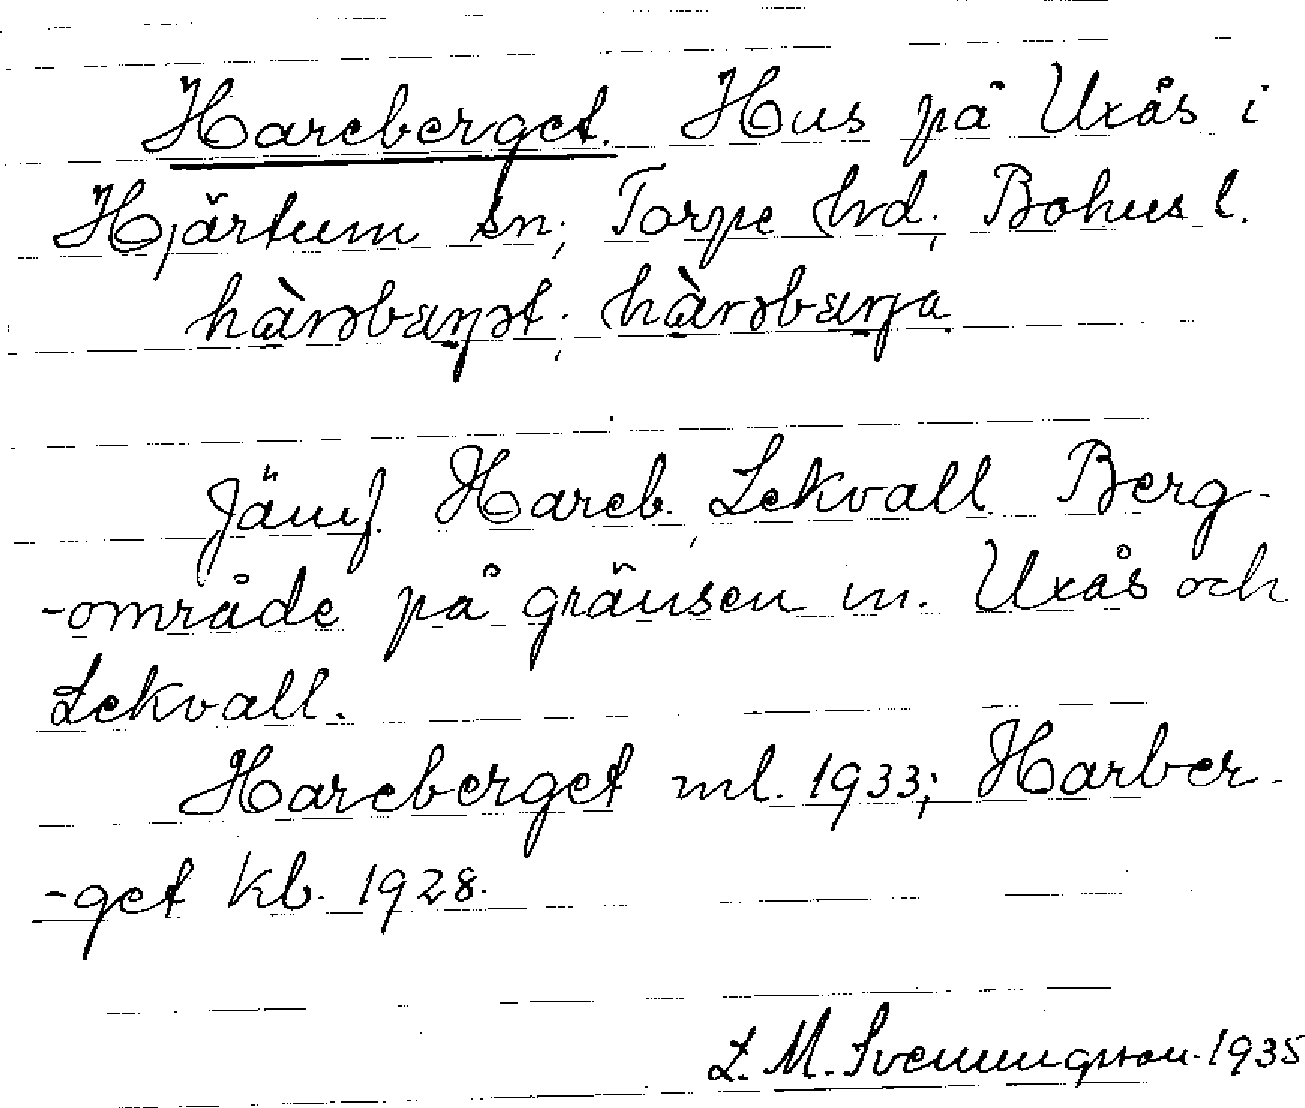 Hareberget. Hus på Uxås i
Hjärtum sn; Torpe hrd; Bohus l.
hàrəbærjət; hàrəbærja
Jämf. Hareb. Lekvall. Berg-
-område på gränsen m. Uxås och
Lekvall.
Hareberget ml. 1933; Harber-
-get kb. 1928.
L. M. Svenungsson. 1935